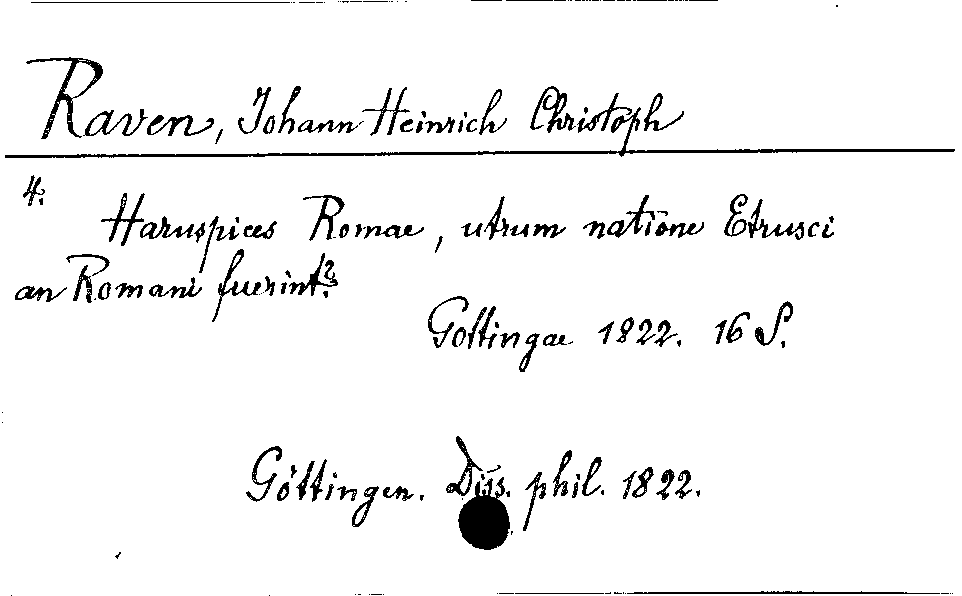 Raven, Johann Heinrich Christoph
4.
Haruspices Romae, utrum natione Etrusci
an Romani fuerint?
Gottingae 1822. 16 S.
Göttingen. Diss. phil. 1822.